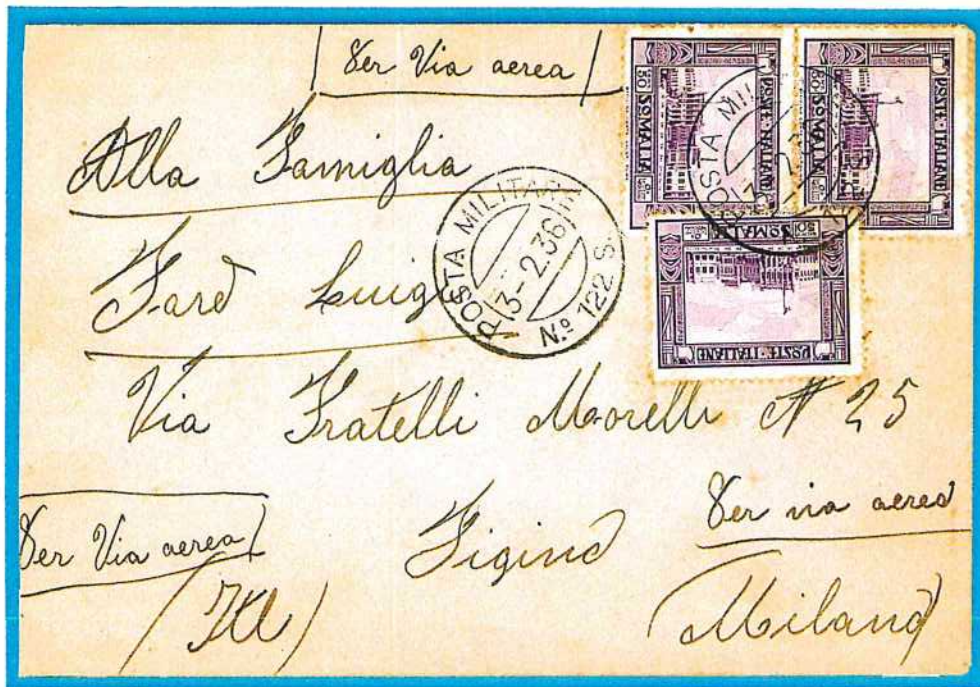 Per Via aerea
Alla Famiglia
Farò Luigi
Via Fratelli Morelli N 25
Figino
Per via aerea
Per Via aerea
Milano
POSTA MILITARE
13-2.36
N.º 122 S.
POSTA MIL
POSTE·ITALIANE
SOMALIA
50
POSTE·ITALIANE
SOMALIA
50
POSTE·ITALIANE
SOMALIA
50